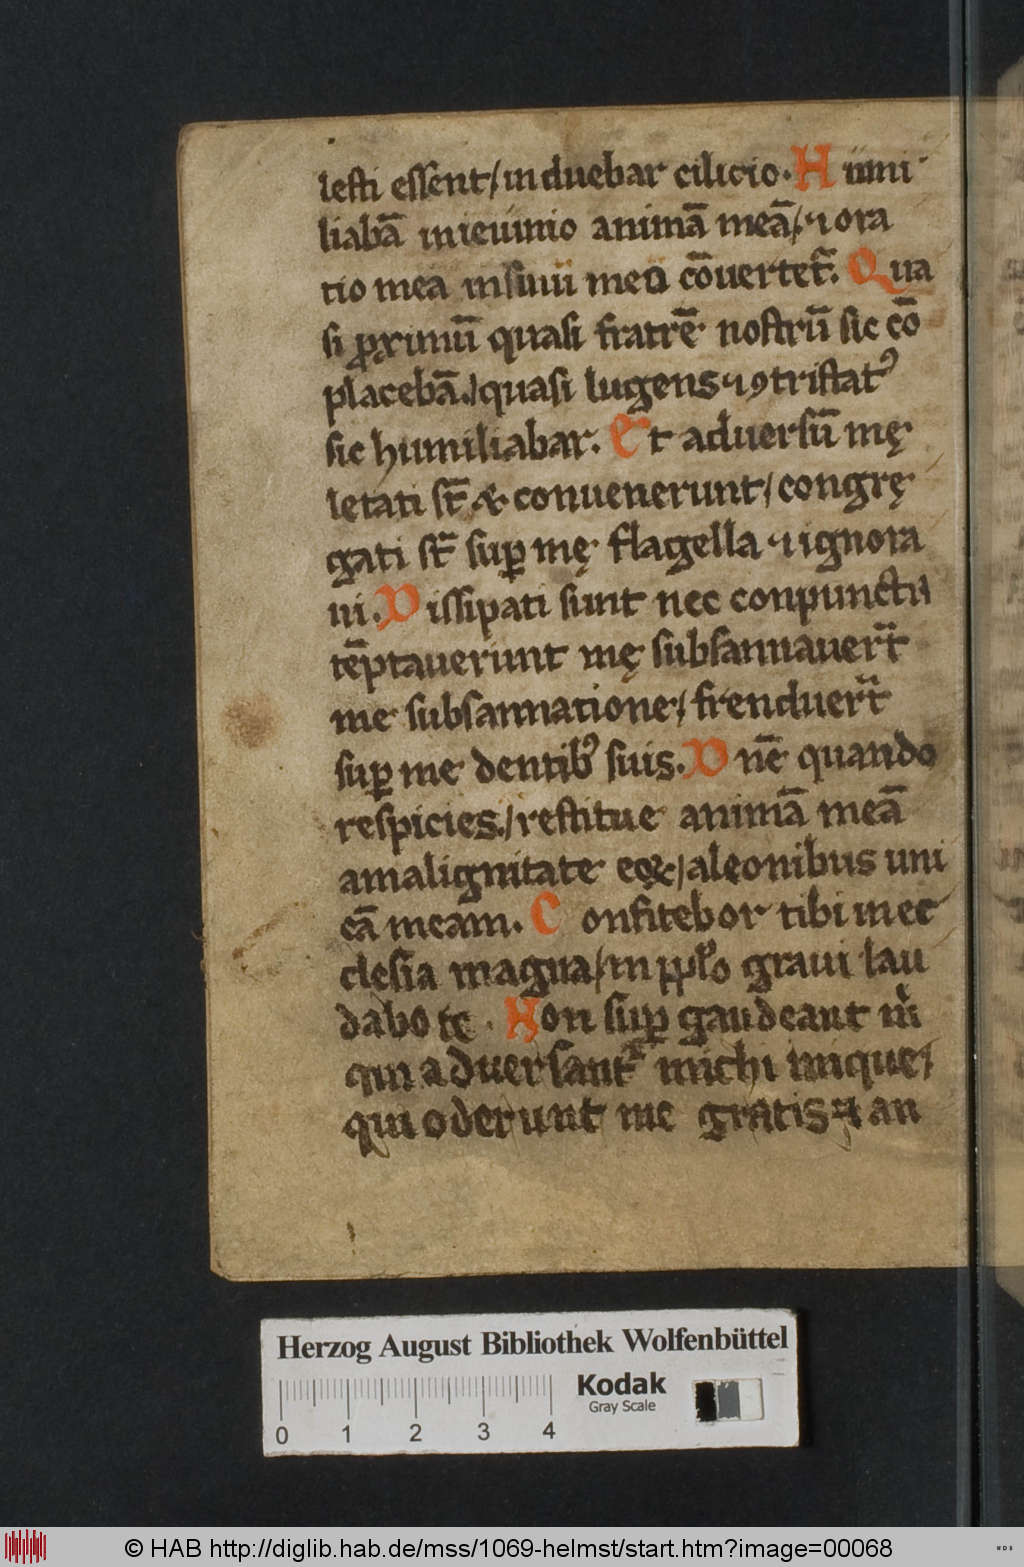 lesti essent/ induebar cilicio. Humi
liabā inieiunio animā meā/ ⁊ ora
tio mea insinu meo cōuertet̄. Qua
si ꝓximū quasi fratrē nostrū sic cō
placebā./ quasi lugens ⁊ ꝯtristatꝰ
sic humiliabar. Et aduersū mę
letati st̄ & conuenerunt/ congrę
gati st̄ suꝑ mę flagella ⁊ ignora
ui. Dissipati sunt nec conpuncti
tēptauerunt mę subsannauer̄t
me subsannatione/ frenduer̄t
suꝑ me dentibꝰ suis. Dnē quando
respicies./ restitue animā meā
amalignitate eoꝝ/ aleonibus uni
cā meam. Confitebor tibi inec
clesia magna/ in ppło graui lau
dabo te. Non suꝑ gaudeant m̄
qui aduersant̄ michi inique/
qui oderunt me gratis ⁊ an
Herzog August Bibliothek Wolfenbüttel
Kodak
Gray Scale
0 1 2 3 4
© HAB http://diglib.hab.de/mss/1069-helmst/start.htm?image=00068